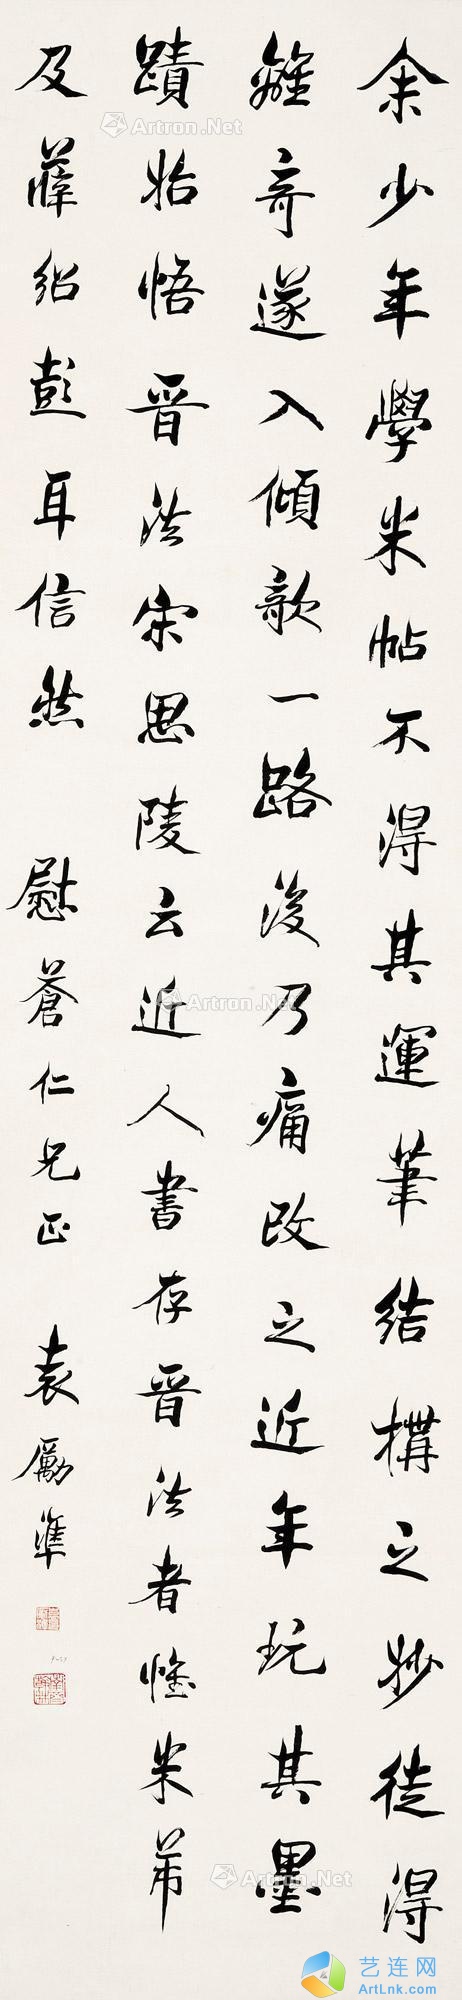 余少年學米帖不得其運筆結構之妙徒得
離奇遂入傾欹一路後乃痛改之近年玩其墨
蹟始悟晉法宋思陵云近人書存晉法者惟米芾
及薛紹彭耳信然
慰蒼仁兄正
袁勵準
Artron.Net
Artron.Net
Artron.Net
Artron.Net
艺连网
ArtLnk.com